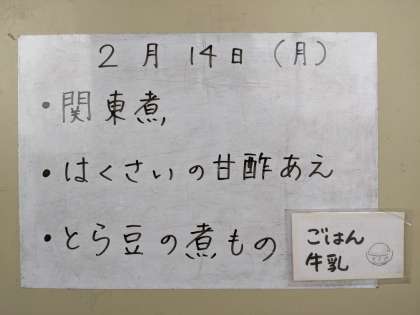 2月14日(月)
・関東煮
・はくさいの甘酢あえ
・とら豆の煮もの
ごはん
牛乳